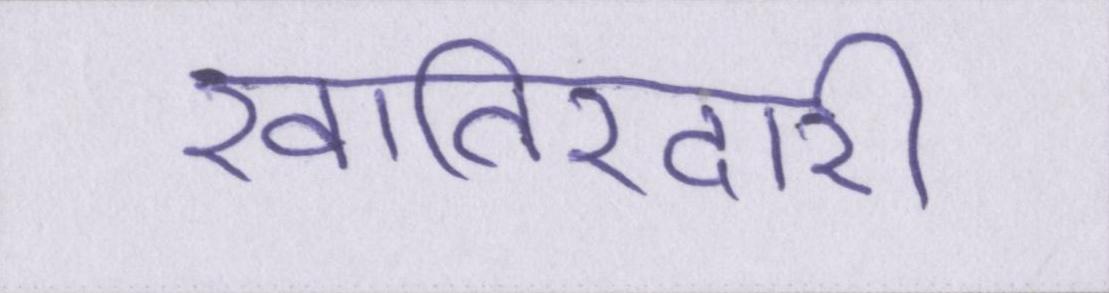 खातिरदारी